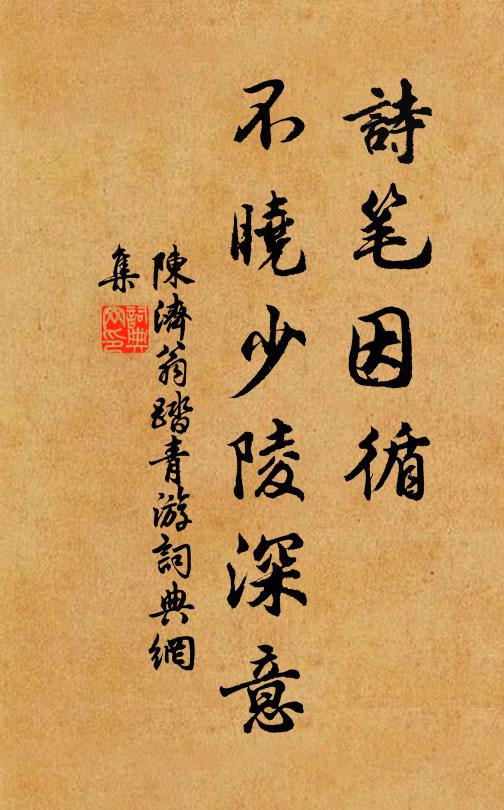 詩笔因循
不曉少陵深意
陳濟翁踏青游詞典網
集
詞典网印